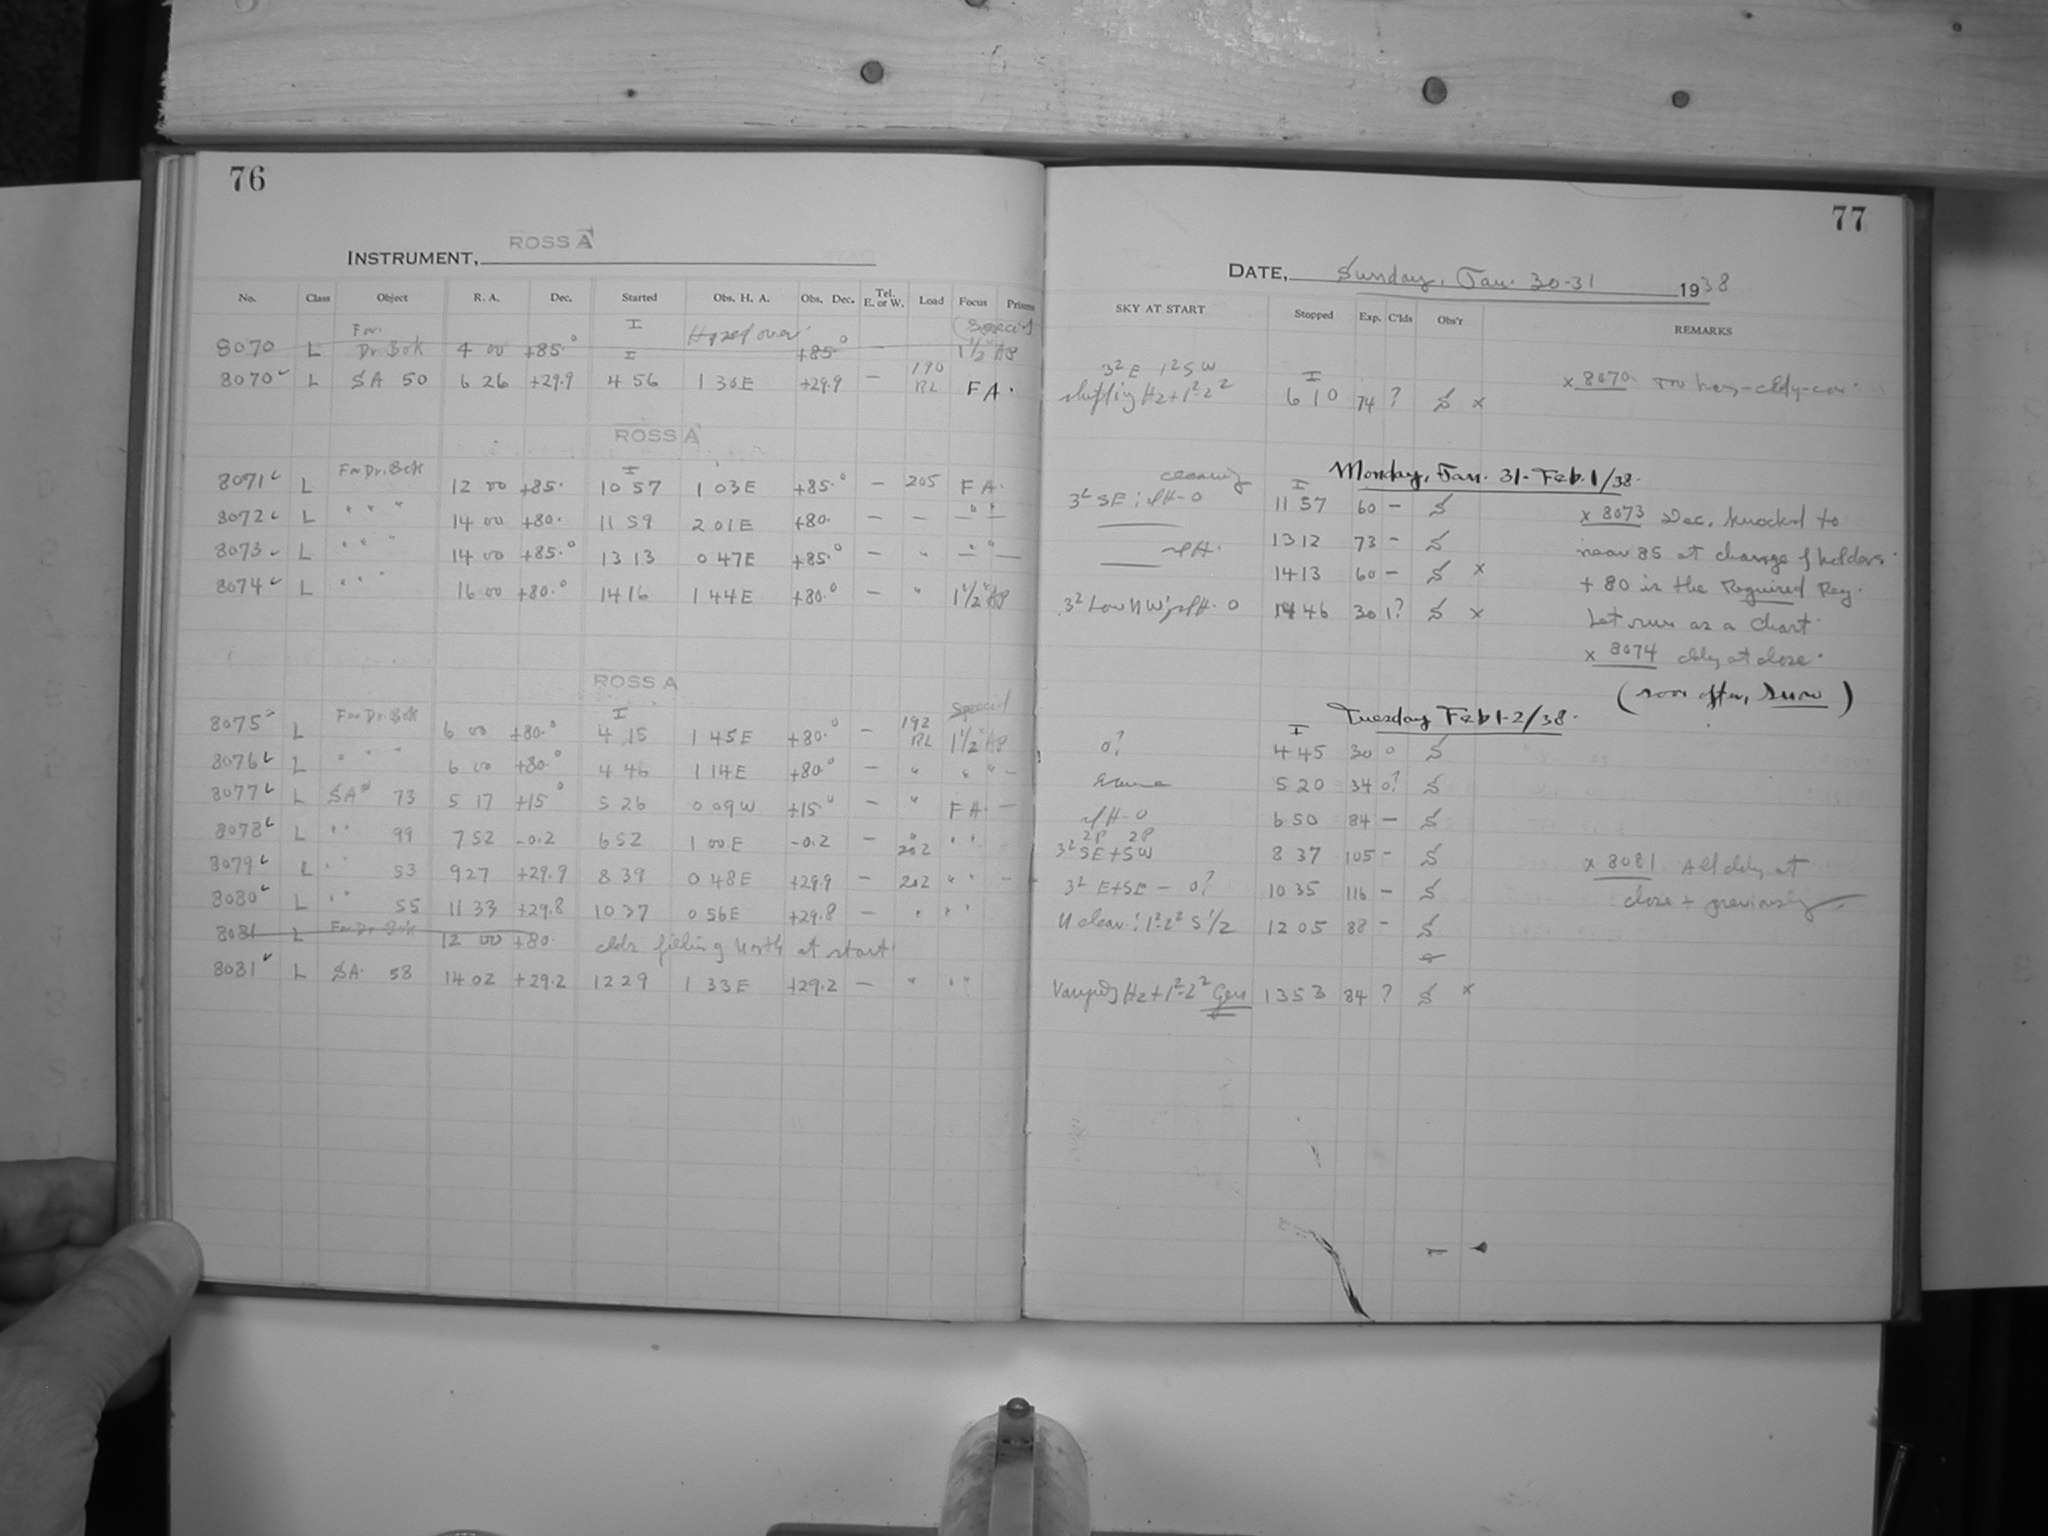 76
INSTRUMENT, ROSS A
No. Class Object R. A. Dec. Started Obs. H. A. Obs. Dec. Tel. E. or W. Load Focus Prisms
8070 L For Dr. Bok 4 00 +85.° I Hazed over +85.° — (Special 1½" Ap
8070 L SA 50 6 26 +29.9 I 4 56 1 30E +29.9 — 190 RL FA.
ROSS A
8071 L For Dr. Bok 12 00 +85. I 10 57 1 03E +85.° — 205 FA.
8072 L " " " 14 00 +80. 11 59 2 01E +80. — — " "
8073 L " " " 14 00 +85.° 13 13 0 47E +85.° — " " "
8074 L " " " 16 00 +80.° 14 16 1 44E +80.° — " 1½" Ap
ROSS A
8075 L For Dr. Bok 6 00 +80.° I 4 15 1 45E +80.° — 192 RL Special 1½" Ap
8076 L " " " 6 00 +80.° 4 46 1 14E +80.° — " " " —
8077 L SA 73 5 17 +15° 5 26 0 09W +15° — " FA. —
8078 L " " 99 7 52 -0.2 6 52 1 00E -0.2 — " 202 " "
8079 L " " 53 9 27 +29.9 8 39 0 48E +29.9 — 202 " " —
8080 L " " 55 11 33 +29.8 10 37 0 56E +29.8 — " " "
8081 L For Dr. Bok 12 00 +80. clds filling North at start
8081 L SA. 58 14 02 +29.2 12 29 1 33E +29.2 — " " "
77
DATE, Sunday, Jan. 30-31 1938
SKY AT START Stopped Exp. C'lds Obs'r REMARKS
3² E 1² SW
shifting Hz + 1²-2² I 6 10 74 ? S x
x 8070
Monday, Jan. 31-Feb. 1/38.
clearing
3² SE; slH-0 I 11 57 60 — S
13 12 73 — S
slH. 14 13 60 — S x
3² Low NW; slH. 0 14 46 30 1? S x
x 8073 Dec. knocked to
near 85 at change of holders.
+80 is the Required Reg.
Let run as a Chart.
x 8074 cldy at close.
(soon after, snow)
Tuesday Feb 1-2/38.
0? I 4 45 30 0 S
Same 5 20 34 0? S
slH-0 6 50 84 — S
2P 2P
3² SE+SW 8 37 105 — S
3² E+SE — 0? 10 35 116 — S
N clear: 1²-2² S ½ 12 05 88 — S
Varying Hz + 1²-2² Gen 13 53 84 ? S x
x 8081 All cldy at
close + previously